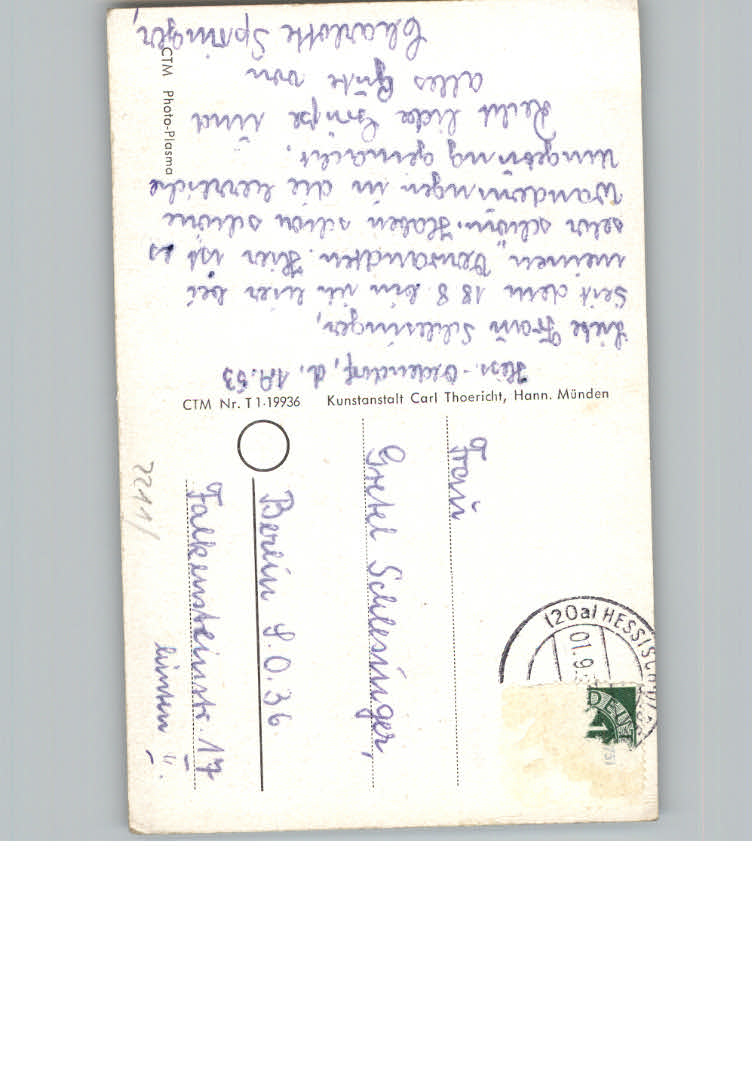 Hess.-Oldendorf, d. 1.9.53
Liebe Frau Schlesinger,
Seit dem 18.8. bin ich hier bei
meinen Verwandten. Hier ist es
sehr schön. Haben schon schöne
Wanderungen in die herrliche
Umgebung gemacht.
Recht liebe Grüße und
alles Gute von
Charlotte Springer,
CTM Photo-Plasma
CTM Nr. T 1-19936 Kunstanstalt Carl Thoericht, Hann. Münden
Frau
Gretel Schlesinger,
Berlin S.O.36
Falkensteinstr. 17
hinten II.
2211/
(20a) HESSISCH
01.9.5